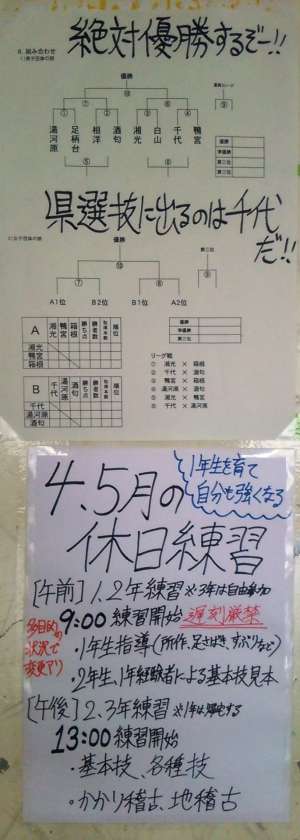 絶対優勝するぞー!!
8.組み合わせ
優勝
⑩
⑦
⑧
⑨
①
②
③
④
湯河原 足柄台 相洋 酒匂 湘光 白山 千代 鴨宮
⑤
⑥
優勝
準優勝
第三位
第三位
県選抜に出るのは千代だ!!
優勝
第三位
⑩
⑦
⑧
⑨
A1位 B2位 B1位 A2位
優勝
準優勝
第三位
A 湘光 鴨宮 箱根 勝ち点 勝者数 取得本数 順位
湘光
鴨宮
箱根
B 千代 湯河原 酒匂 勝ち点 勝者数 取得本数 順位
千代
湯河原
酒匂
リーグ戦
① 湘光 × 箱根
② 千代 × 酒匂
③ 鴨宮 × 箱根
④ 湯河原 × 酒匂
⑤ 湘光 × 鴨宮
⑥ 千代 × 湯河原
1年生を育て
自分も強くなる
4、5月の
休日練習
[午前] 1、2年練習 ※3年は自由参加
9:00 練習開始 遅刻厳禁
・1年生指導(所作、足さばき、すぶりなど)
・2年生、1年経験者による基本技見本
多目的の
状況で
変更アリ
[午後] 2、3年練習 ※1年は帰宅する
13:00 練習開始
・基本技、各種技
・かかり稽古、地稽古